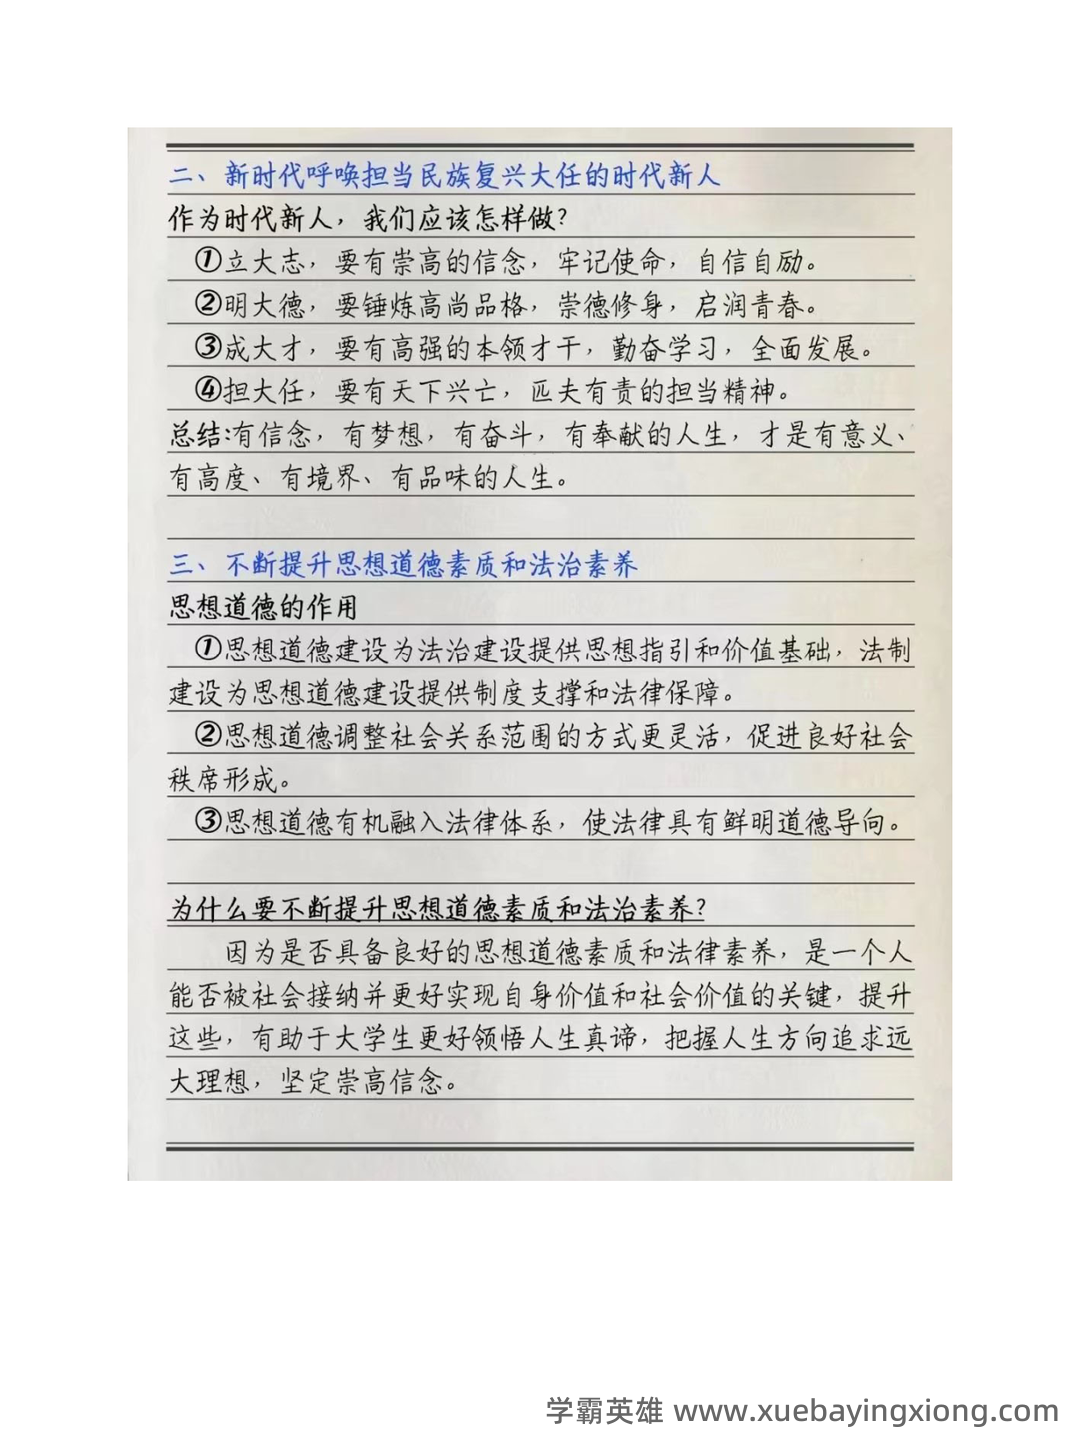 二、新时代呼唤担当民族复兴大任的时代新人
作为时代新人，我们应该怎样做？
①立大志，要有崇高的信念，牢记使命，自信自励。
②明大德，要锤炼高尚品格，崇德修身，启润青春。
③成大才，要有高强的本领才干，勤奋学习，全面发展。
④担大任，要有天下兴亡，匹夫有责的担当精神。
总结:有信念，有梦想，有奋斗，有奉献的人生，才是有意义、
有高度、有境界、有品味的人生。
三、不断提升思想道德素质和法治素养
思想道德的作用
①思想道德建设为法治建设提供思想指引和价值基础，法制
建设为思想道德建设提供制度支撑和法律保障。
②思想道德调整社会关系范围的方式更灵活，促进良好社会
秩席形成。
③思想道德有机融入法律体系，使法律具有鲜明道德导向。
为什么要不断提升思想道德素质和法治素养？
因为是否具备良好的思想道德素质和法律素养，是一个人
能否被社会接纳并更好实现自身价值和社会价值的关键，提升
这些，有助于大学生更好领悟人生真谛，把握人生方向追求远
大理想，坚定崇高信念。
学霸英雄 www.xuebayingxiong.com